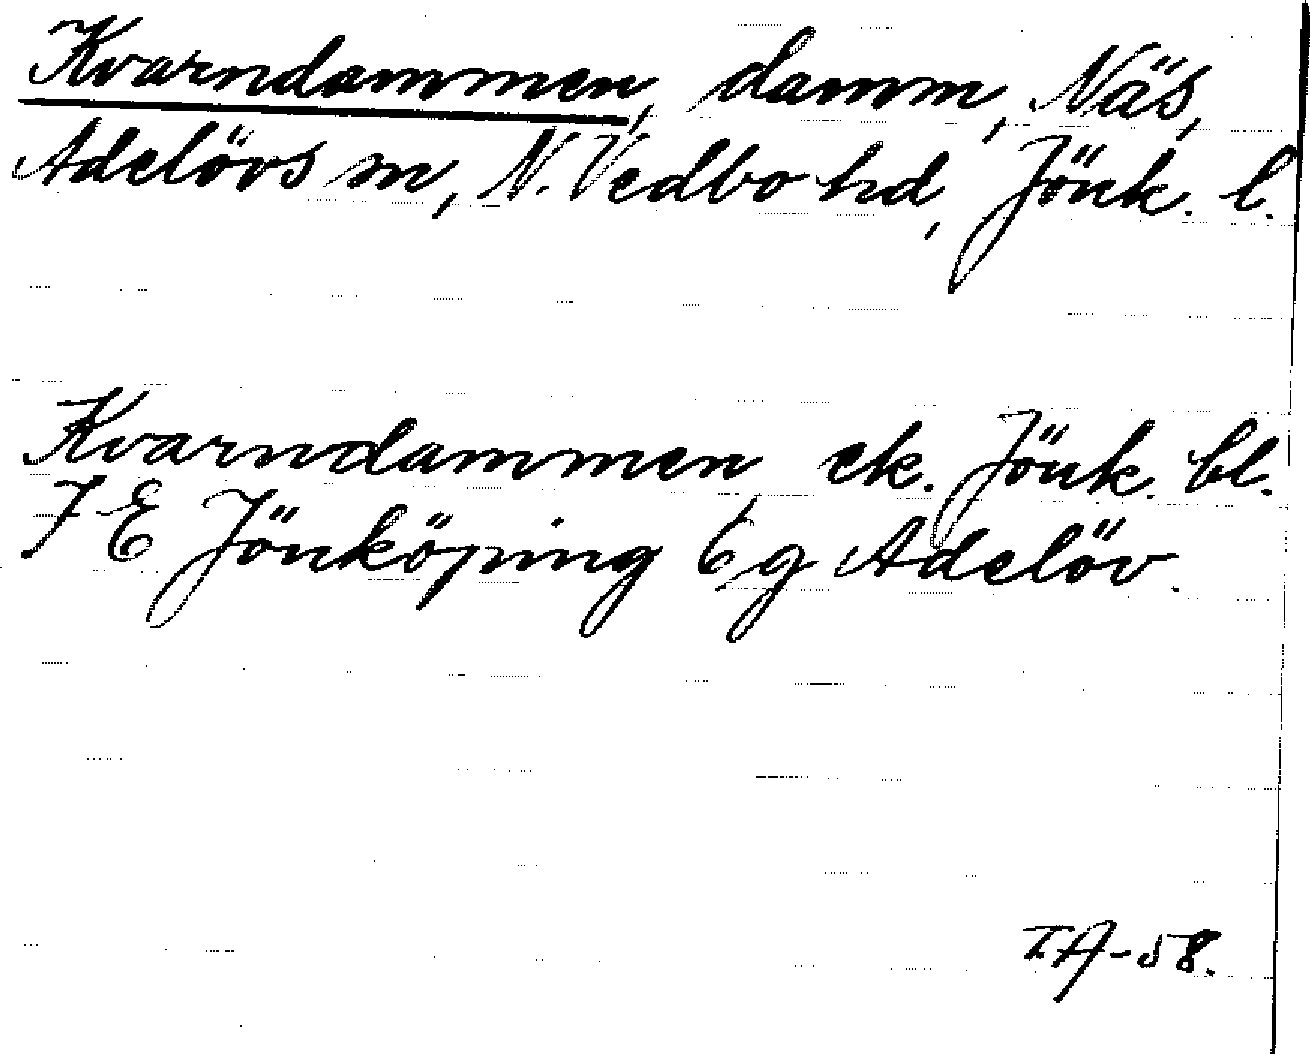 Kvarndammen, damm, Näs,
Adelövs sn, N. Vedbo hd, Jönk. l.
Kvarndammen ek. Jönk. bl.
7 E Jönköping 6 g Adelöv.
T.A-58.